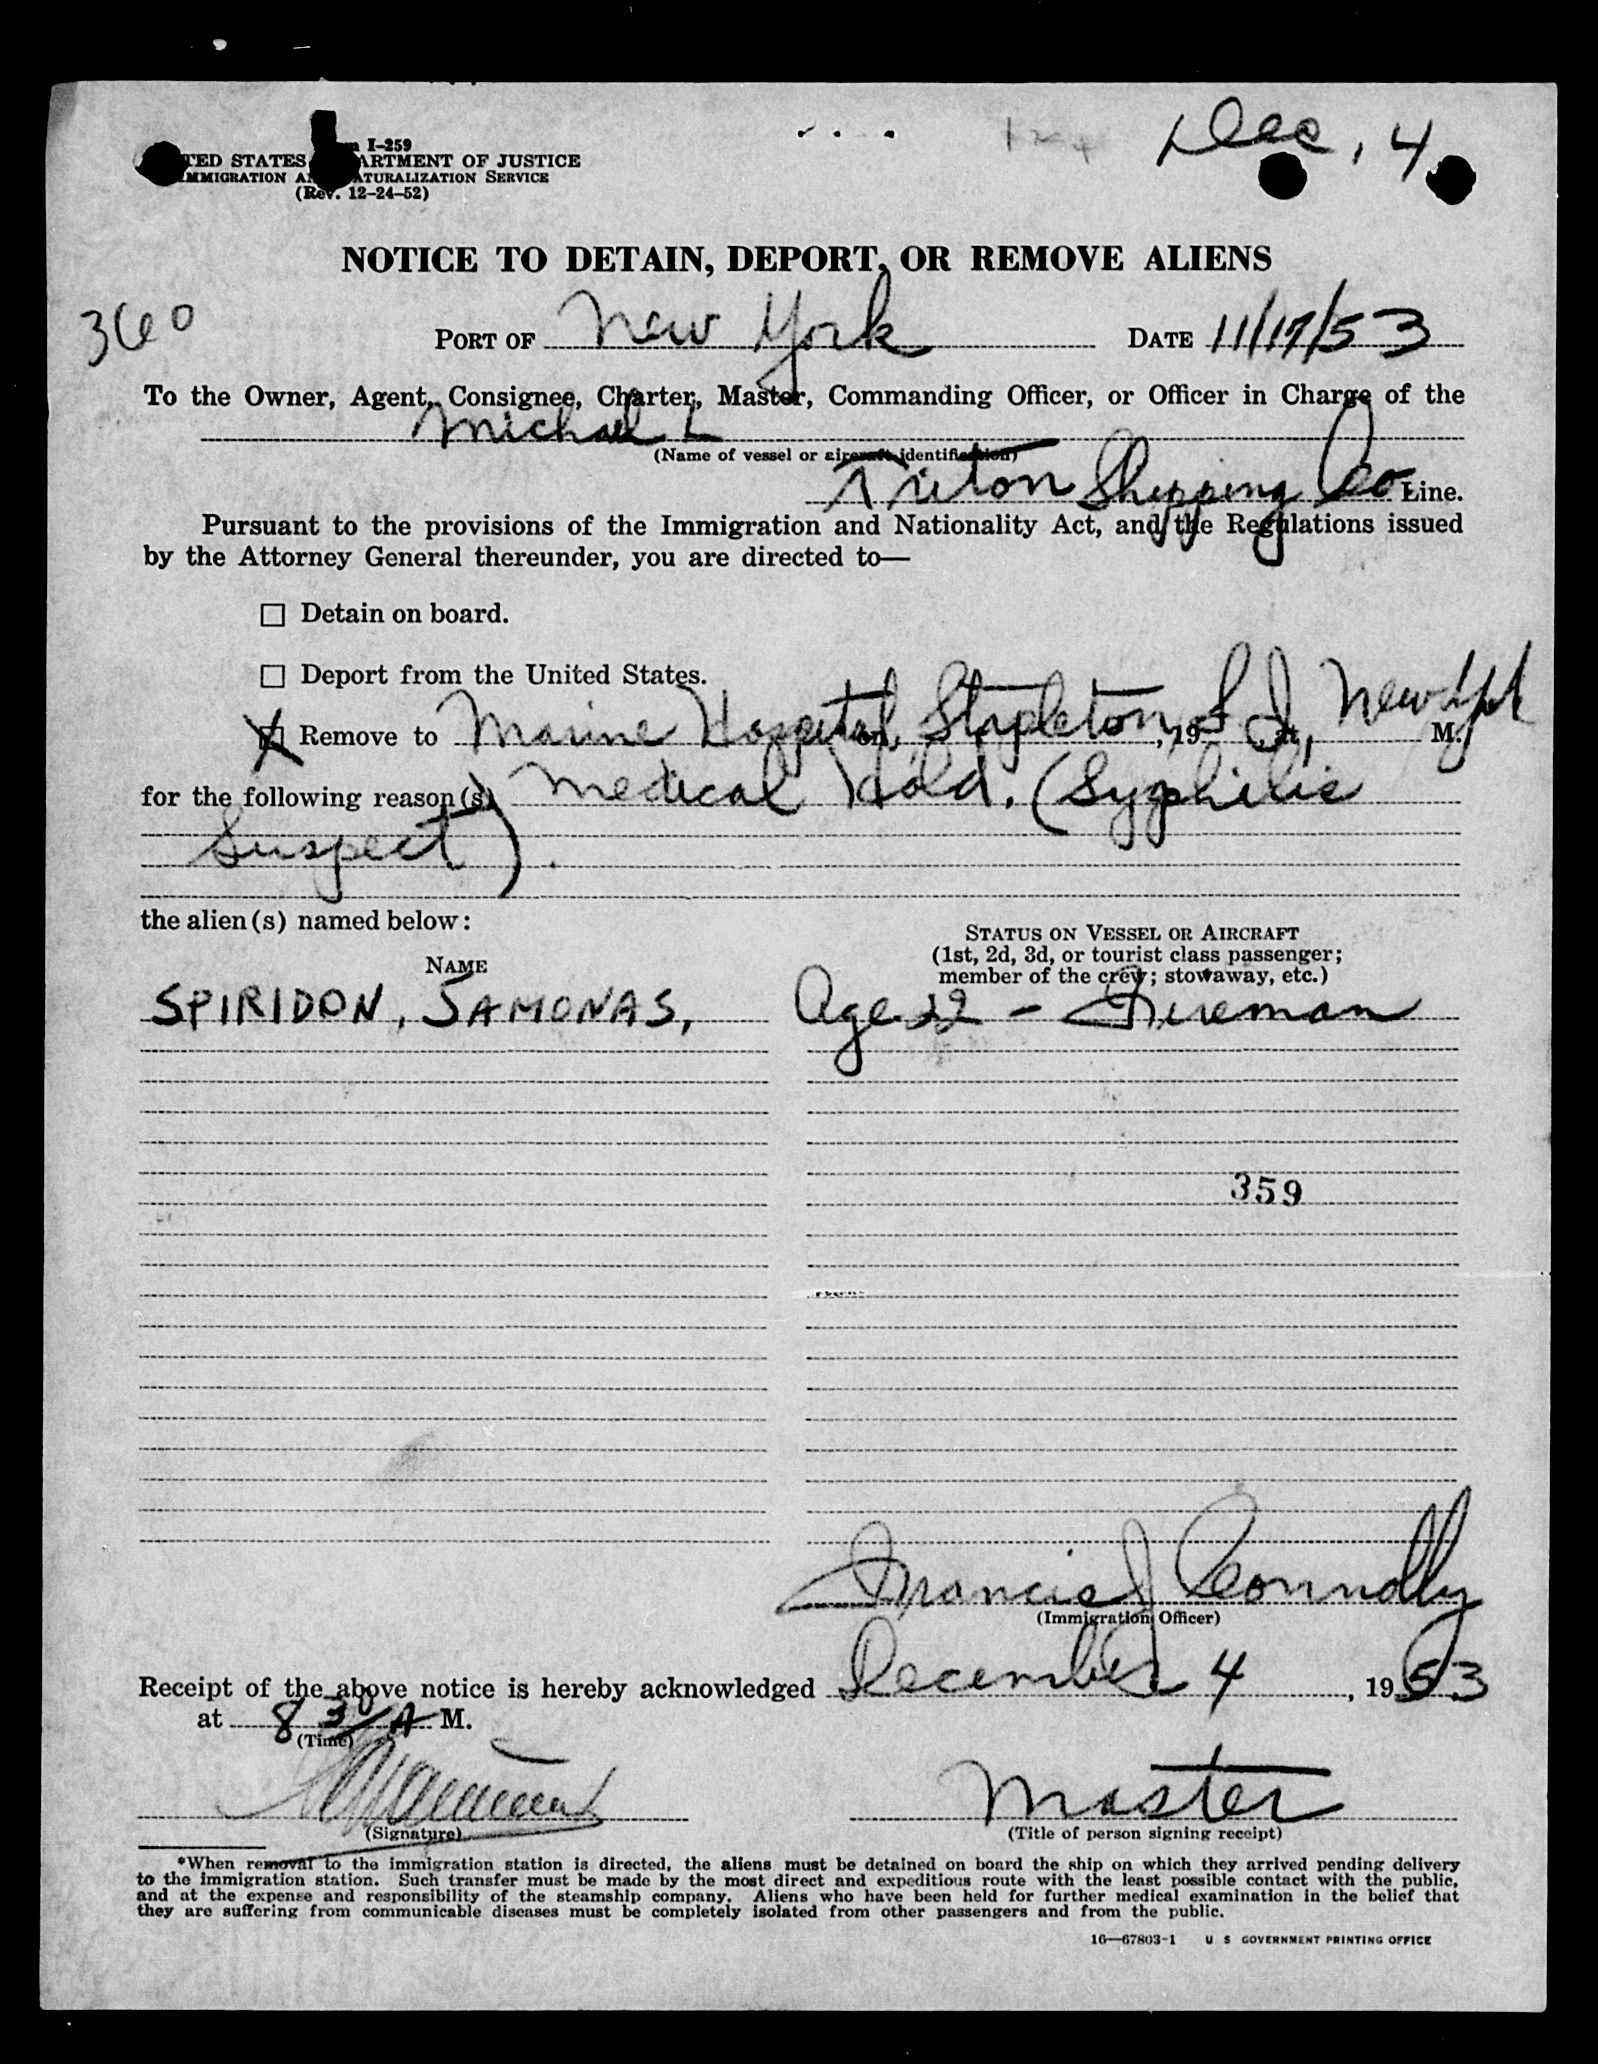 Dec, 4
I-259
TED STATES ARTMENT OF JUSTICE
MMIGRATION A ATURALIZATION SERVICE
(Rev. 12-24-52)
NOTICE TO DETAIN, DEPORT, OR REMOVE ALIENS
360
PORT OF New York DATE 11/17/53
To the Owner, Agent, Consignee, Charter, Master, Commanding Officer, or Officer in Charge of the
Michael L
(Name of vessel or aircraft identification)
Triton Shipping Co Line.
Pursuant to the provisions of the Immigration and Nationality Act, and the Regulations issued
by the Attorney General thereunder, you are directed to—
☐ Detain on board.
☐ Deport from the United States.
☒ Remove to Marine Hospital, on Stapleton, , 19 S. I., at New York M.
for the following reason(s) Medical Hold. (Syphilis
Suspect).
the alien(s) named below:
STATUS ON VESSEL OR AIRCRAFT
(1st, 2d, 3d, or tourist class passenger;
member of the crew; stowaway, etc.)
NAME
SPIRIDON, SAMONAS, Age 22 - Fireman
359
Francis J Connolly
(Immigration Officer)
Receipt of the above notice is hereby acknowledged December 4, 1953
at 8 30/A M.
(Time)
Master
(Signature) (Title of person signing receipt)
*When removal to the immigration station is directed, the aliens must be detained on board the ship on which they arrived pending delivery
to the immigration station. Such transfer must be made by the most direct and expeditious route with the least possible contact with the public,
and at the expense and responsibility of the steamship company. Aliens who have been held for further medical examination in the belief that
they are suffering from communicable diseases must be completely isolated from other passengers and from the public.
16—67803-1 U S GOVERNMENT PRINTING OFFICE